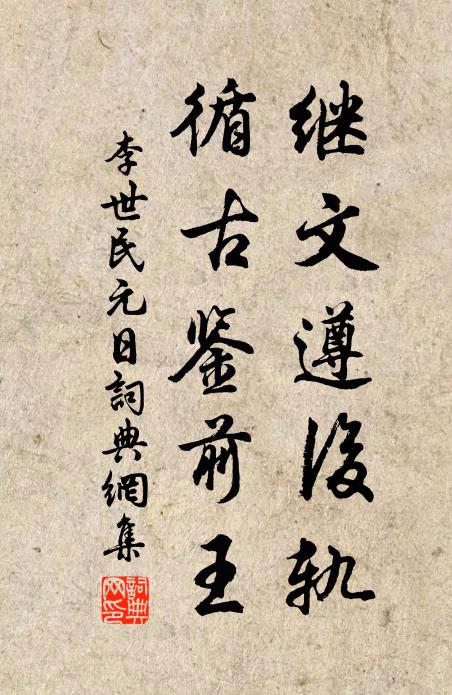 继文遵后轨
循古鉴前王
李世民元日詞典網集
詞典网印